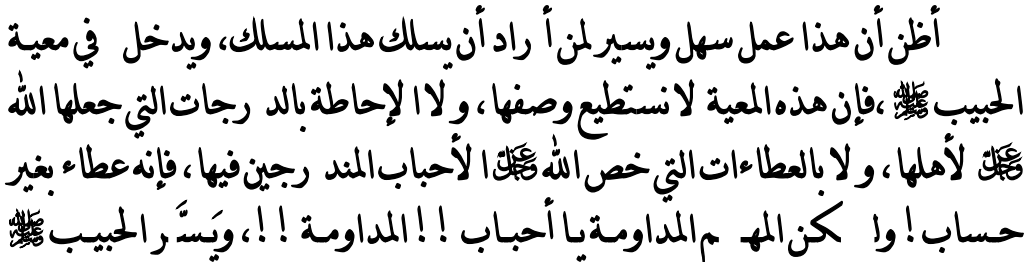 أظن أن هذا عمل سهل ويسير لمن أراد أن يسلك هذا المسلك، ويدخل في معية
الحبيب ﷺ، فإن هذه المعية لا نستطيع وصفها، ولا الإحاطة بالدرجات التي جعلها الله
عَزَّ وَجَلَّ لأهلها، ولا بالعطاءات التي خص الله عَزَّ وَجَلَّ الأحباب المندرجين فيها، فإنه عطاء بغير
حساب! ولكن المهم المداومة يا أحباب!! المداومة!!، ويَسَّر الحبيب ﷺ